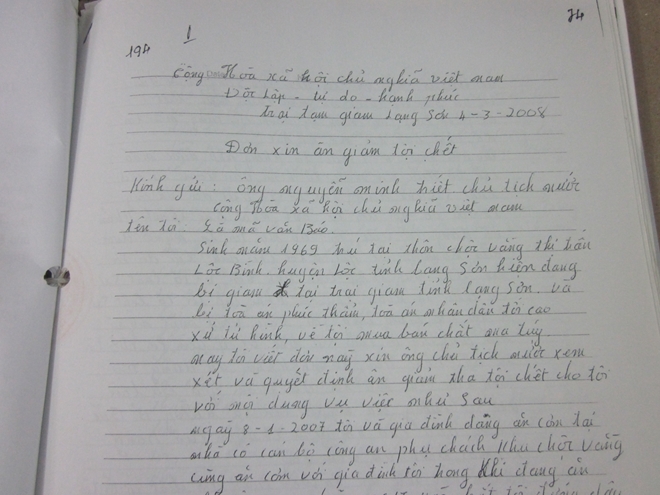 194
1
74
Cộng Hòa xã hội chủ nghĩa việt nam
Độc lập - tự do - hạnh phúc
trại tạm giam Lạng Sơn 4-3-2008
Đơn xin ân giảm tội chết
Kính gửi: ông nguyễn minh triết chủ tịch nước
Cộng Hòa xã hội chủ nghĩa việt nam
tên tôi: Là mã văn Bảo.
Sinh năm 1969 trú tại thôn chờ vàng thị trấn
Lộc Bình huyện Lộc tỉnh Lạng Sơn hiện đang
bị giam tại trại giam tỉnh Lạng Sơn. và
bị toà án phúc thẩm, toà án nhân dân tối cao
xử tử hình, về tội mua bán chất ma tuý.
nay tôi viết đơn này xin ông chủ tịch nước xem
xét và quyết định ân giảm tha tội chết cho tôi
với nội dung vụ việc như sau
ngày 8-1-2007 tôi và gia đình đang ăn cơm tại
nhà có cán bộ công an phụ chách khu chờ vàng
cùng ăn cơm với gia đình tôi trong khi đang ăn